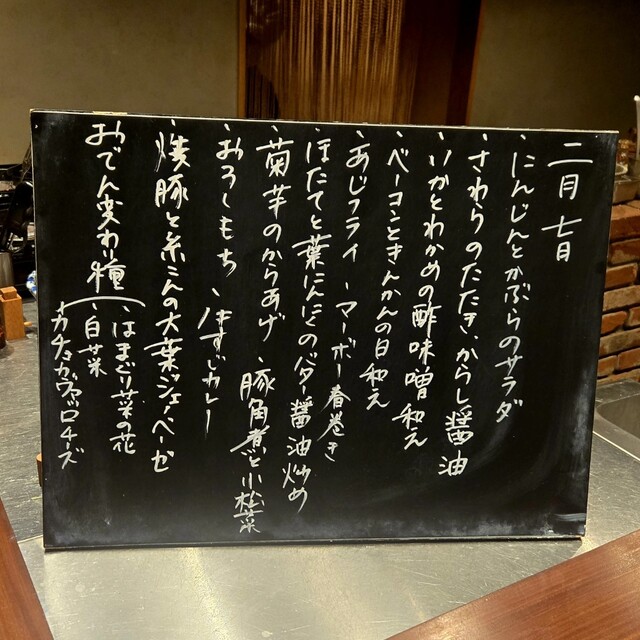 二月七日
・にんじんとかぶらのサラダ
・さわらのたたき、からし醤油
・いかとわかめの酢味噌和え
・ベーコンときんかんの白和え
・あじフライ ・マーボー春巻き
・ほたてと葉にんにくのバター醤油炒め
・菊芋のからあげ ・豚角煮と小松菜
・おろしもち ・牛すじカレー
・焼豚と糸こんの大葉ジェノベーゼ
おでん変わり種
・はまぐり菜の花
・白菜
・カチョカヴァロチーズ